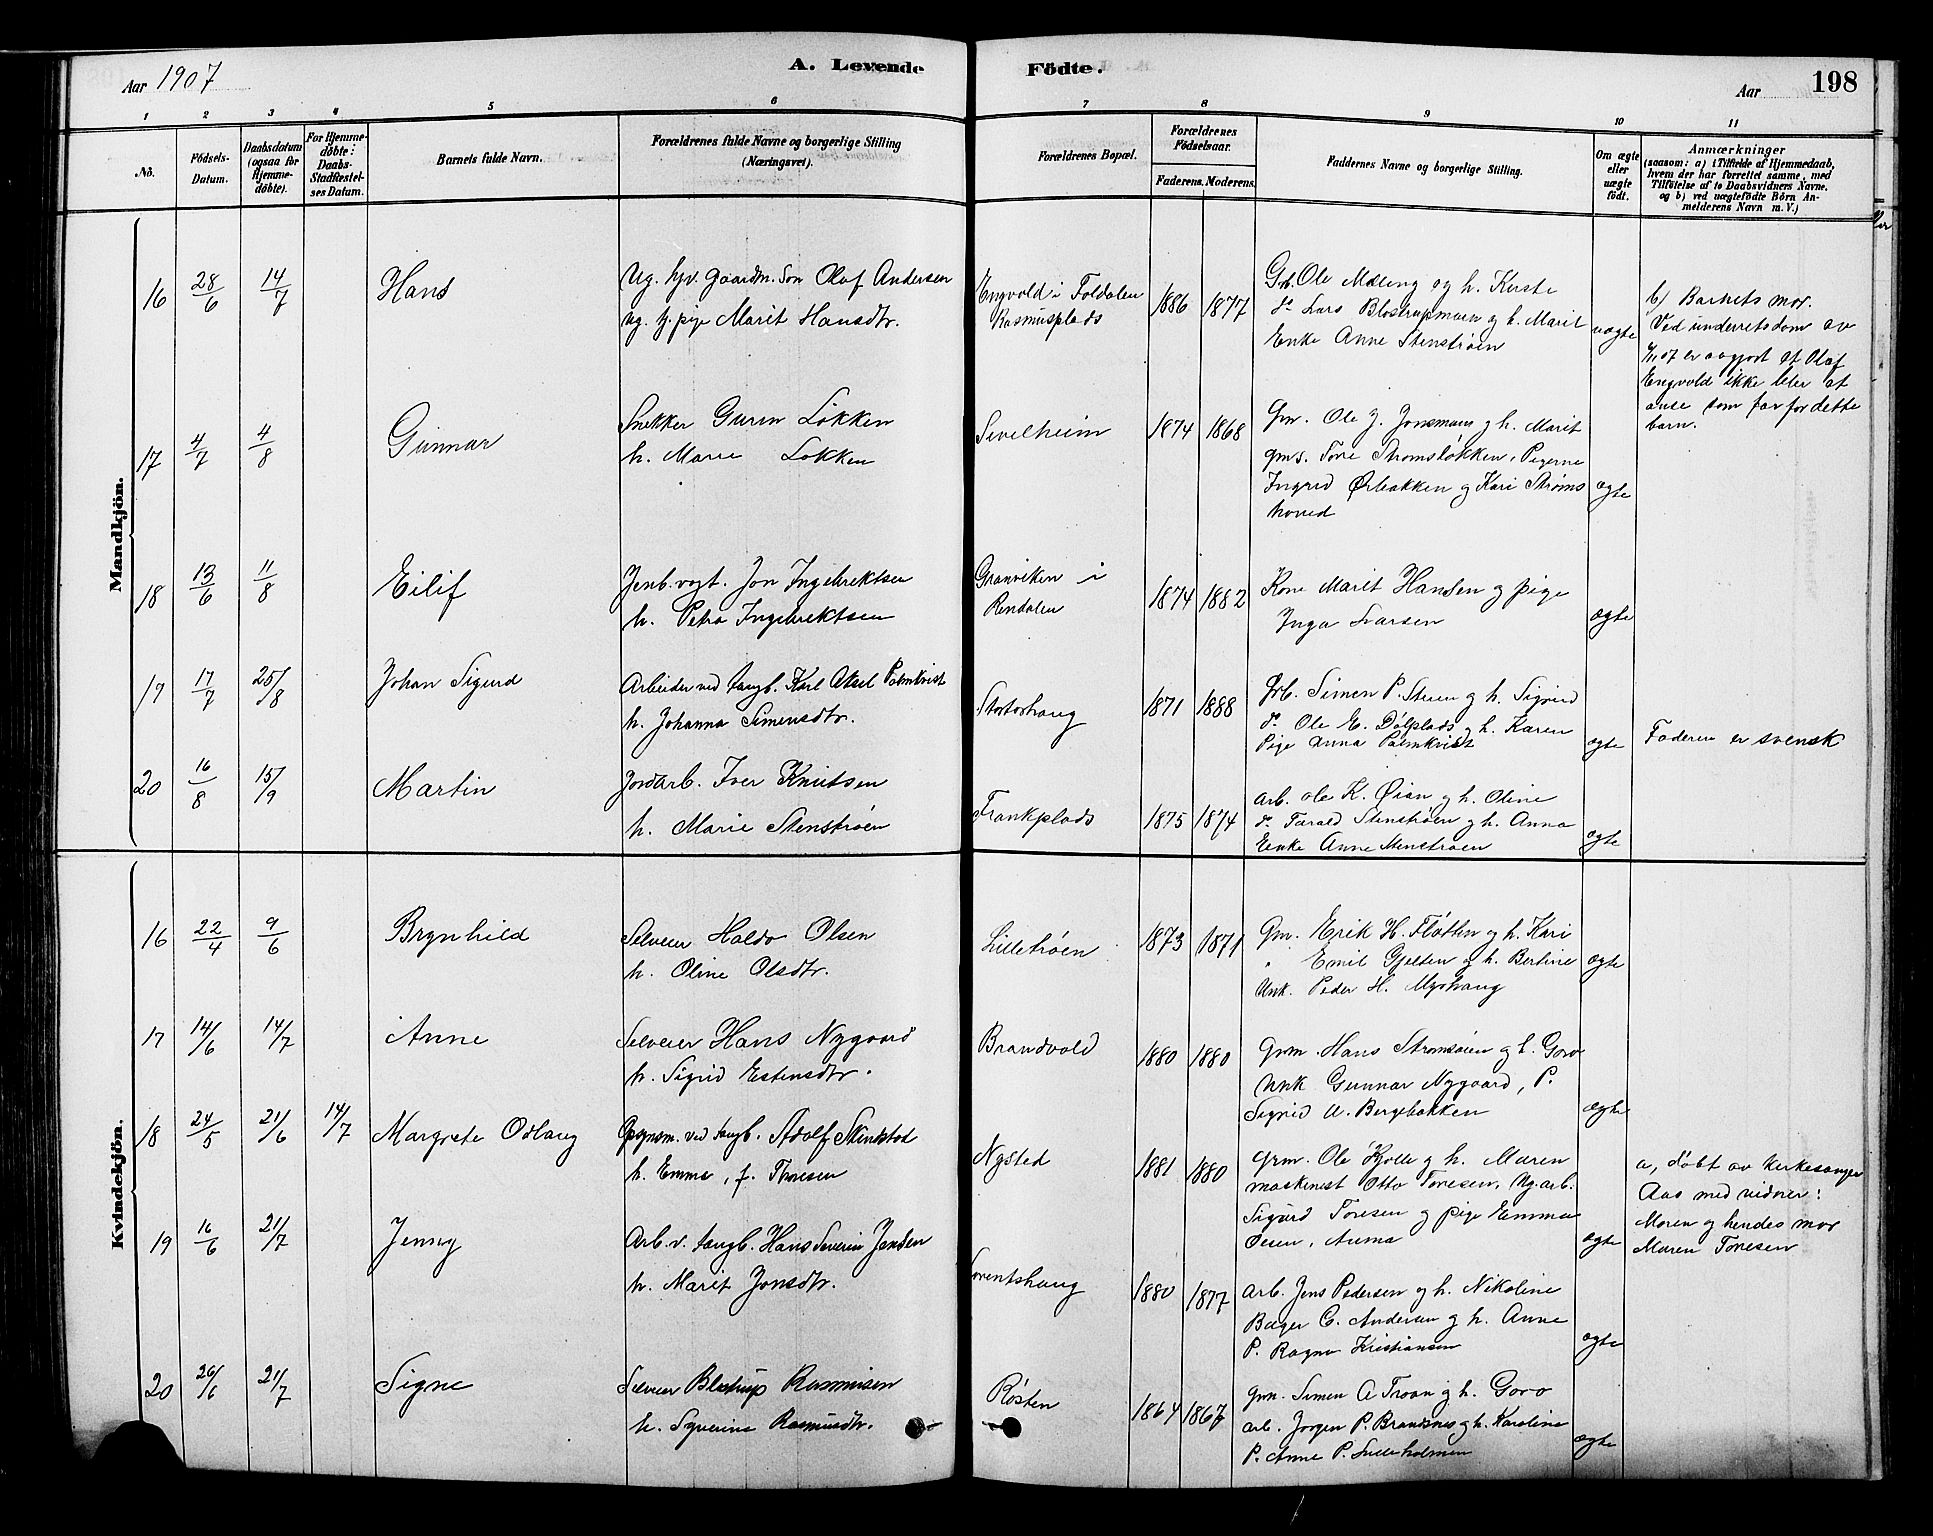 Aar 1907
A. Levende
Födte.
Aar
198
1 2 3 4 5 6 7 8 9 10 11
No.
Födsels-
Datum.
Daabsdatum
(ogsaa for
Hjemme-
döbte).
For Hjemme-
döbte:
Daabs-
Stadfæstel-
ses Datum.
Barnets fulde Navn.
Forældrenes fulde Navne og borgerlige Stilling
(Næringsvei).
Forældrenes Bopæl.
Forældrenes
Födselsaar.
Faderens. Moderens.
Faddernes Navne og borgerlige Stilling.
Om ægte
eller
uægte
födt.
Anmærkninger
(saasom: a) i Tilfælde af Hjemmedaab,
hvem der har forrettet samme, med
Tilföielse af to Daabsvidners Navne.
og b) ved uægtefödte Börn An-
melderens Navn m. V.)
Mandkjön.
16 28/6 14/7 Hans
Ug. hjv. gaardm. Søn Olaf Andersen
Ug. tj. pige Marit Hansdtr.
Engvold i Foldalen
Rasmusplads
1886 1877
Grb. Ole Mæling og h. Kirste
do Lars Blostrupmoen og h. Marit
Enke Anne Stenstrøen
uægte
b) Barnets mor.
Ved underretsdom av
er avgjort at Olaf
Engvold ikke blir at
anse som far for dette
barn.
17 4/7 4/8 Gunnar
Snekker Gurin Løkken
h. Marie Løkken
Sivelheim
1874 1868
Gm. Ole J. Jonsmoen og h. Marit
gms. Tore Strømsløkken, Pigerne
Ingrid Ørbakken og Kari Strøms
hoved
ægte
18 13/6 11/8 Eilif
Jenb.vogt. Jon Ingebrektsen
h. Petra Ingebrektsen
Granviken i
Rendalen
1874 1882
Kone Marit Hansen og pige
Inga Ivarsen
ægte
19 17/7 25/8 Johan Sigurd
Arbeider ved tangb. Karl Aksel Palmkvist
h. Johanna Simensdtr.
Stortorhaug
1871 1888
Grb. Simen P. Steien og h. Sigrid
do Ole E. Dølplads og h. Karen
Pige Anna Palmkvist
ægte
Faderen er svensk
20 16/8 15/9 Martin
Jordarb. Iver Knutsen
h. Marie Stenstrøen
Frankplads
1875 1874
arb. Ole K. Øian og h. Oline
do Tarald Stenstrøen og h. Anna
Enke Anne Stenstrøen
ægte
Kvindekjön.
16 22/4 9/6 Brynhild
Selveier Haldo Olsen
h. Oline Olsdtr.
Lilletrøen
1873 1871
Gm. Erik H. Fløtten og h. Kari
" Emil Gjelten og h. Berline
Unk. Peder H. Myrhaug
ægte
17 14/6 14/7 Anne
Selveier Hans Nygaard
h. Sigrid Estensdtr.
Brandvold
1880 1880
Grm. Hans Strømsøien og h. Goro
Unk Gunnar Nygaard, P.
Sigrid A. Bergebakken
ægte
18 24/5 21/6 14/7 Margrete Odlaug
Opsynsm. ved tangb. Adolf Skinstad
h. Emma, f. Thoresen
Nysted
1881 1880
Grm. Ole Kjølle og h. Maren
maskinist Otto Toresen, Ug. arb.
Sigurd Toresen og pige Emma
Olsen, Auma
ægte
a, døbt av kirkesanger
Aas med vidner:
Moren og hendes mor
Maren Toresen
19 16/6 21/7 Jenny
Arb. v. tangb. Hans Severin Jensen
h. Marit Jonsdtr.
Lorentshaug
1880 1877
arb. Jens Pedersen og h. Nikoline
Bager C. Andersen og h. Anne
P. Ragna Kristiansen
ægte
20 26/6 21/7 Signe
Selveier Blostrup Rasmusen
h. Syverine Rasmusdtr.
Røsten
1864 1867
grm. Simen A Troan og h. Goro
arb. Jørgen P. Brandsnes og h. Karoline
P. Anne P. Lilleholmen
ægte